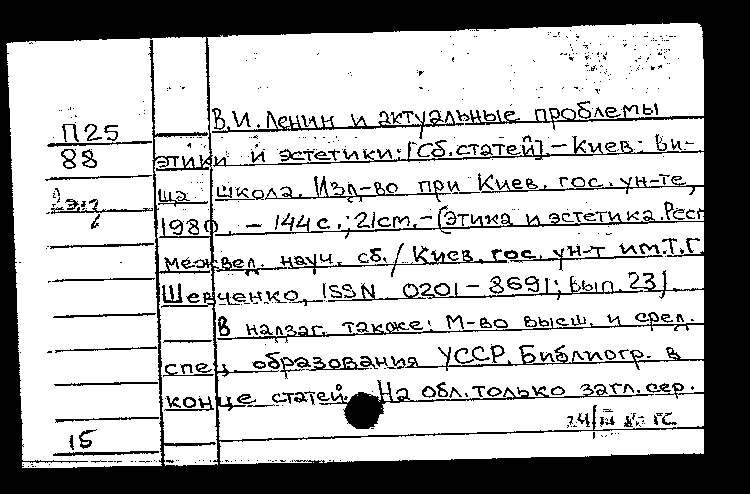 В.И.Ленин и актуальные проблемы
П25
88 этики и эстетики: [Сб.статей]. - Киев: Ви-
2 экз ща школа. Изд-во при Киев. гос. ун-те,
1980. - 144 с.; 21 см. - (Этика и эстетика. Респ
межвед. науч. сб./ Киев. гос. ун-т им. Т.Г.
Шевченко, ISSN 0201-8691; Вып. 23).
В надзаг. также: М-во высш. и сред.
спец. образования УССР. Библиогр. в
конце статей. На обл. только загл. сер.
15